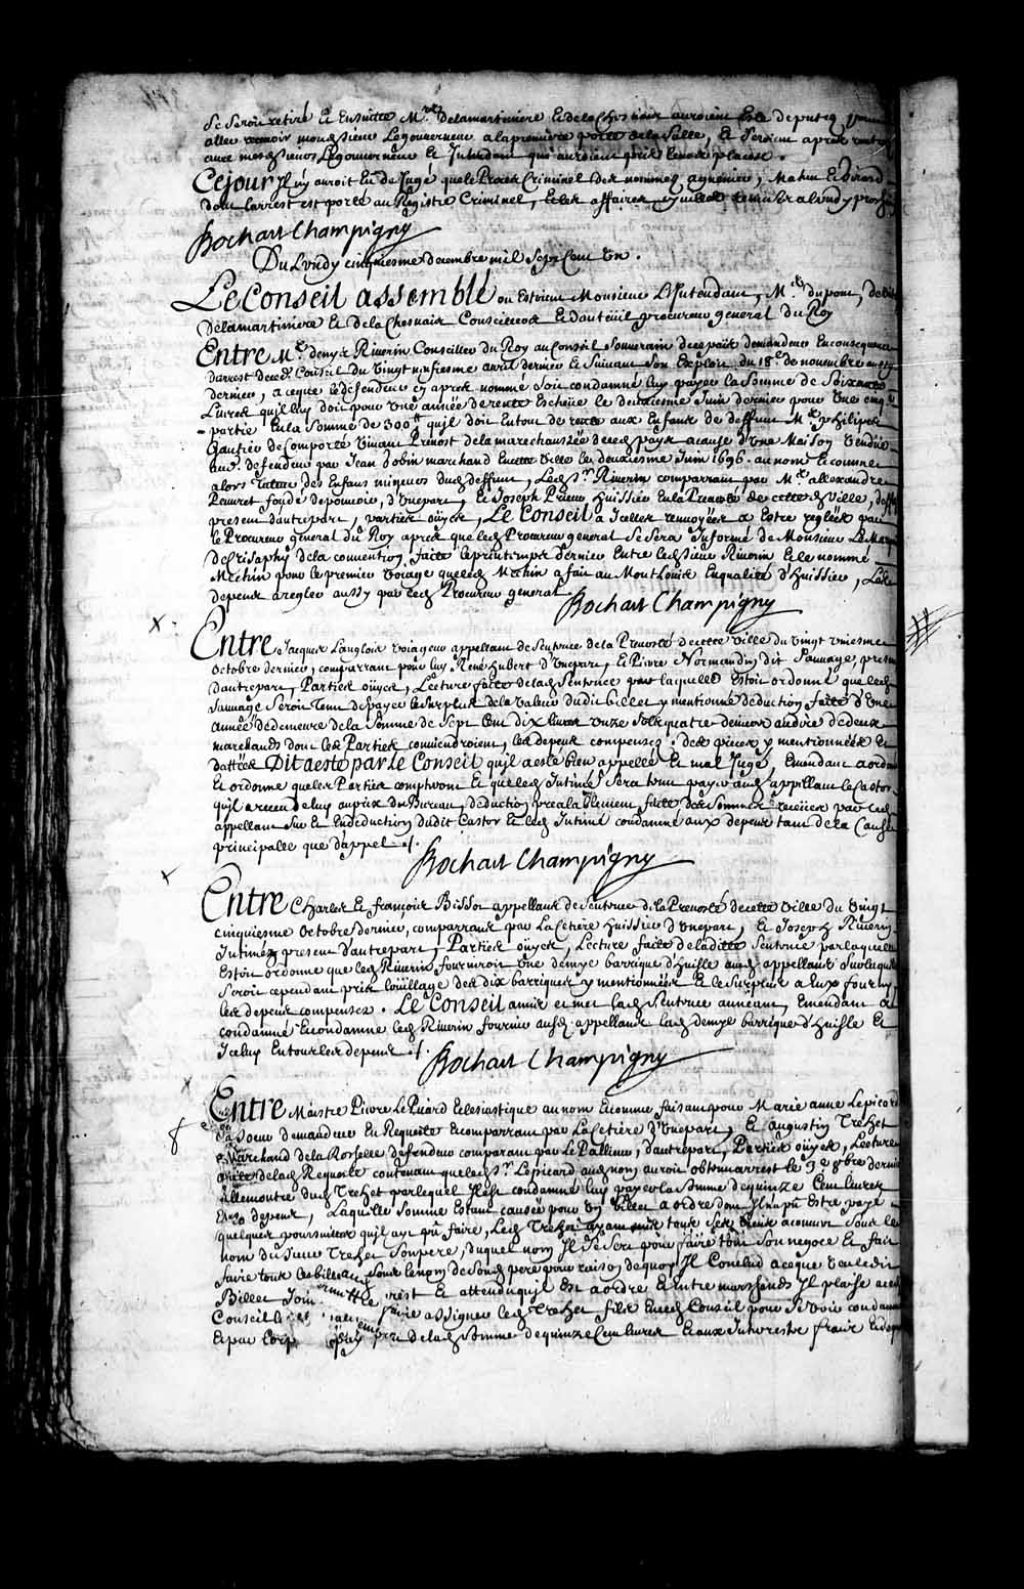 Se Seroit retiré Et Ensuitte Mrs delamartiniere Et dela Chesnaie auroient Esté deputez pour
aller recevoir monsieur Legouverneur a la premiere porte dela Salle, Et Seroient aprez rentrez
avec messieurs Legouverneur Et Intendant qui auroient pris leurs places.
Cejour Il ny auroit Eu de Jugé que le Procez Criminel des nommez agneniere, Maheu Et Dirard
dont Larrest est porté au Registre Criminel, Et les affaires civilles remises a lundy prochain
Bochart Champigny
Du Lundy cinquiesme decembre mil Sept Cent Un.
Le Conseil assemblé ou Estoient Monsieur LIntendant, Mes dupont, de
Delamartiniere Et dela Chesnaie Conseillers Et dauteüil procureur general du Roy
Entre Me denys Riverin Conseiller du Roy au Conseil Souverain de ce païs demandeur En consequence
darrest de ced. Conseil du Vingt neufiesme avril dernier Et Suivant Son Exploit du 18e de novembre aussy
dernier, a ceque le defendeur cy aprez nommé Soit condamné luy payer la Somme de Soixante
Livres quil luy doit pour Une année de rente Escheüe le deuxiesme Juin dernier pour Une cinqe
partie En la Somme de 300lt quil doit En tout de rente aux Enfans de deffunt Me philipes
Gautier de Comporté Vivant Prevost dela marechaussée de ced pays a cause d'Une Maison Vendüe
aud. defendeur par Jean Gobin marchand En cette Ville le deuxiesme Juin 1696. au nom Et comme
alors Tuteur des Enfans mineurs dud deffunt, Led Sr Riverin comparant par Me allexandre
Peuvret fondé de pouvoir, d'Une part, Et Joseph Prieur huissier En la Prevosté de cette d Ville, deffr
present d'autre part, parties oüyes, Le Conseil a Icelles renvoyées a Estre reglées par
le Procureur general du Roy aprez que led Procureur general Se Sera Informé de Monsieur Le Marquis
de Crisaphy dela convention faite le printemps dernier Entre led Sieur Riverin Et le nommé
Mechin pour le premier voiage que led Mechin a fait au Mont Louis En qualité d'huissier, Les
depens a regler aussy par led Procureur general
Bochart Champigny
Entre Jacques Langlois Voiageur appellant de Sentence de la Prevosté de cette Ville du Vingt uniesme
Octobre dernier, comparant pour luy René hubert d'Une part, Et Pierre Normandin dit Sauvage, present
dautre part, Parties oüyes, Lecture faite delad Sentence par laquelle Il Estoit ordonné que led
Sauvage Seroit tenu de payer le Surplus dela valeur dudit billet y mentionné deduction faite d'Une
année de demeure dela Somme de Sept Cent dix livres onze Sols quatre deniers au dire de deux
marchands dont les Parties conviendroient, les depens compensez; des pieces y mentionnées Et
dattées Dit a esté par le Conseil quil a esté bien appellé Et mal Jugé, Emendant a ordonné
Et ordonne que les Parties compteront Et que led Intimé Sera tenu payer aud appellant le Castor
quil a receu de luy au prix du Bureau, deduction prealablement faite des Sommes receües par led
appellant Sur Et En deduction dudit Castor Et led Intimé condamné aux depens tant dela Cause
principalle que d'appel ./.
Bochart Champigny
Entre Charles Et françois Bissot appellans de Sentence dela Prevosté de cette Ville du Vingt
cinquiesme octobre dernier, comparans par La Cetiere Huissier d'Une part, Et Joseph Riverin
Intimé present d'autre part, Parties oüyes, Lecture faite de ladite Sentence par laquelle
Estoit ordonné que led Riverin fourniroit Une demye barrique d'huille aud appellans Sur laquelle
Seroit cependant pris Loüillage des dix barriques y mentionnées Et le Surplus a Eux fourny
les depens compensez. Le Conseil a mis Et met lad Sentence a neant, Emendant a
condamné Et condamne led Riverin fournir ausd. appellans lad demye barrique d'huille Et
Iceluy En tous les depens ./.
Bochart Champigny
Entre Maistre Pierre Le Picard Eclesiastique au nom Et comme faisant pour Marie anne Lepicard
Sa Soeur demandeur En Requeste Et comparant par La Cetiere d'Une part, Et augustin Trehet
Marchand de la Rochelle defendeur comparant par Le Pallieur, d'autre part, Parties oüyes, Lecture
faite delad Requeste contenant que led Sr Lepicard aud nom auroit obtenu arrest le 3e 8bre dernier
allencontre dud Trehet par lequel Il est condamné luy payer la Somme de quinze Cent livres
Et es depens, Laquelle Somme Estant causée pour Un billet a ordre dont Il n'a pû Estre payé
quelques poursuittes quil ayt pû faire, Led Trehet ayant mis tous Ses biens a couvert Sous le
nom du Sieur Trehet Son pere, duquel nom Il Se Sert pour faire tout Son negoce Et fait
faire tous Ses billets Sous le nom de Sond pere pour raison de quoy Il Conclud a ceque Veu ledit
Billet Joint rest Et attendu quil Est a ordre Et entre marchands Il plaise aud
Conseil faire assigner led Trehet fils En ced Conseil pour Se Voir condamner
Et par Corps delad Somme de quinze Cent livres Et aux Interests frais Et depens